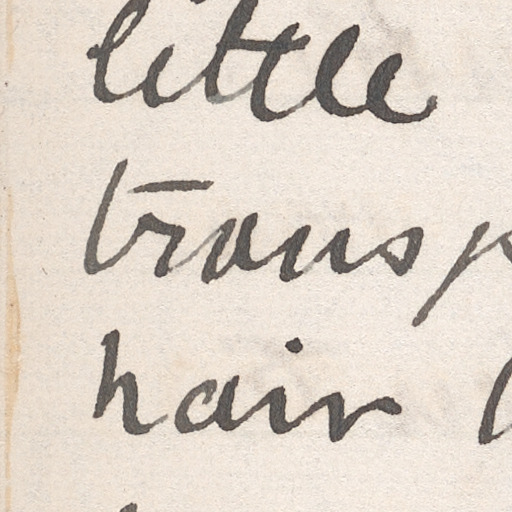 little
transp
hair